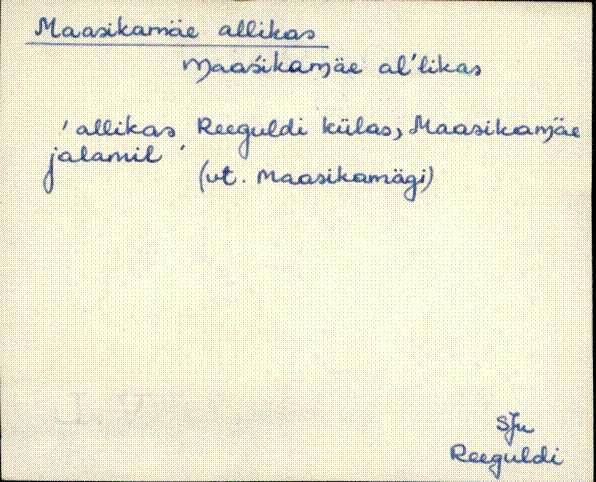 Maasikamäe allikas
Maaśikamäe al'likas
'allikas Reeguldi külas, Maasikamäe
jalamil'
(vt. Maasikamägi)
SJn
Reeguldi